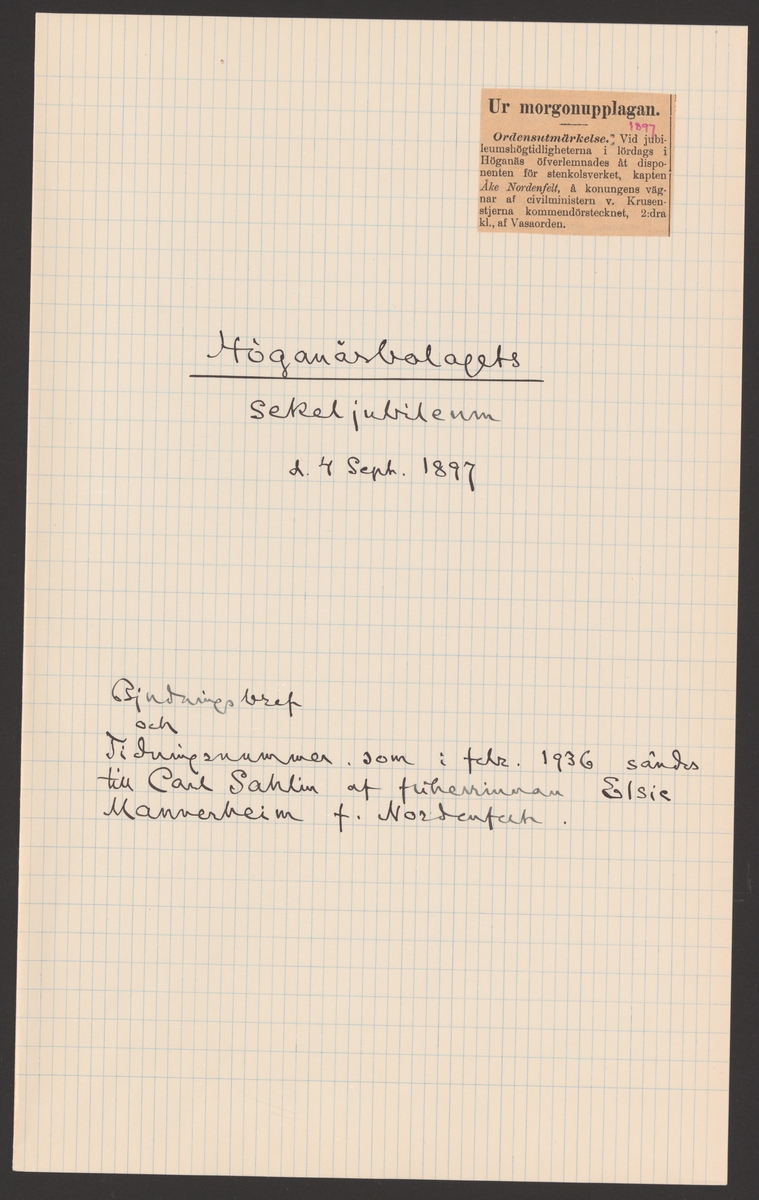 Ur morgonupplagan.
1897
Ordensutmärkelse. Vid jubi-
leumshögtidligheterna i lördags i
Höganäs öfverlemnades åt dispo-
nenten för stenkolsverket, kapten
Åke Nordenfelt, å konungens väg-
nar af civilministern v. Krusen-
stjerna kommendörstecknet, 2:dra
kl., af Vasaorden.
Höganäsbolagets
Sekeljubileum
d. 4 Sept. 1897
Bjudningsbref
och
Tidningsnummer, som i febr. 1936 sändes
till Carl Sahlin af friherrinnan Elsie
Mannerheim f. Nordenfelt.